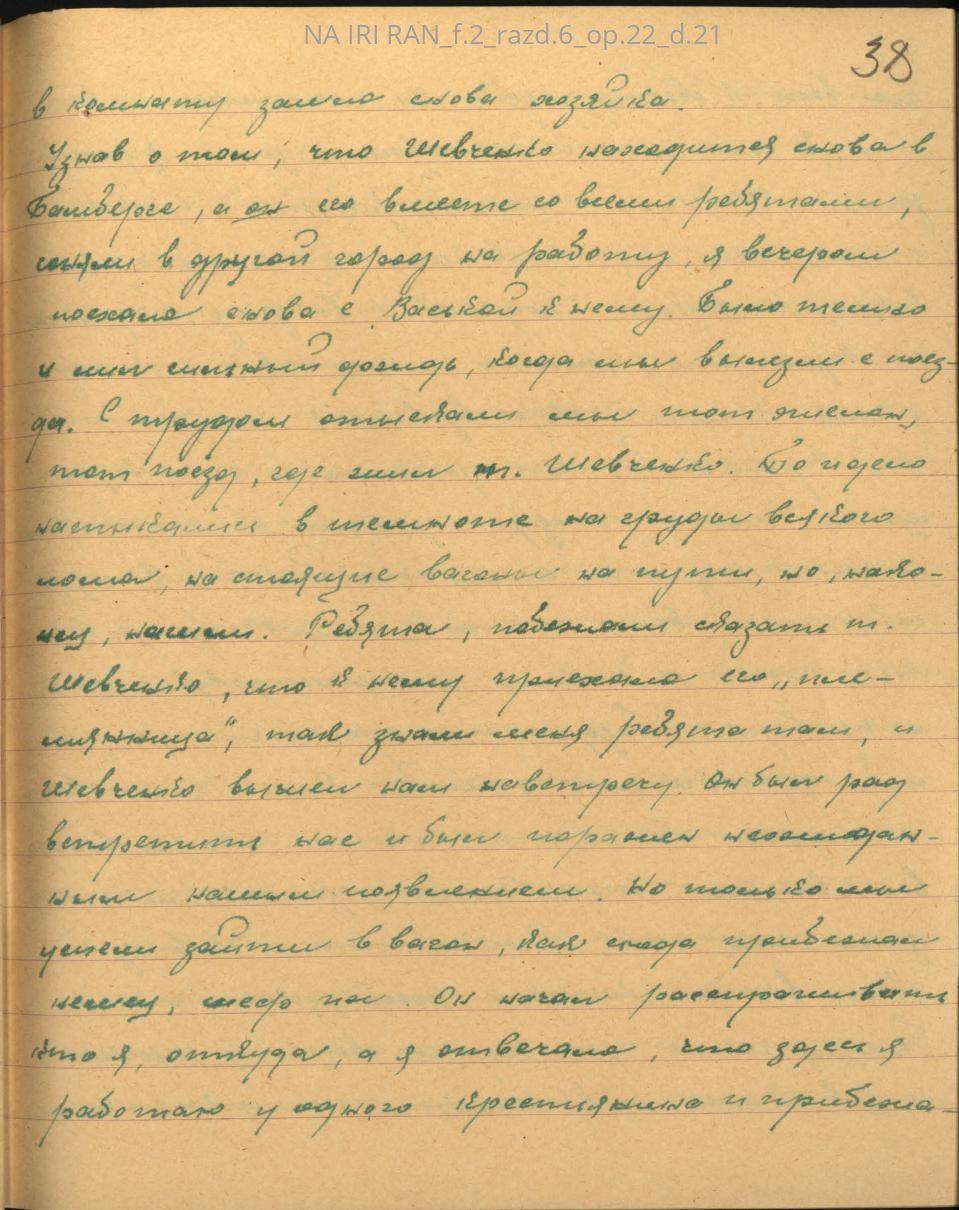 NA IRI RAN_f.2_razd.6_op.22_d.21
38
в комнату зашла снова хозяйка.
Узнав о том, что Шевченко находится снова в
Бамберге, а он его вместе со всеми ребятами,
сняли в другой город на работу, я вечером
поехала снова с Васькой к нему. Было темно
и шел сильный дождь, когда мы вылезли с поез-
да. С трудом отыскали мы тот эшелон,
тот поезд, где жил т. Шевченко. То и дело
натыкались в темноте на груды всякого
лома, на стоящие вагоны на пути, но, нако-
нец, нашли. Ребята, побежали сказать т.
Шевченко, что к нему приехала его „пле-
мянница", так знали меня ребята там, и
Шевченко вышел нам навстречу. Он был рад
встретить нас и был поражен неожидан-
ным нашим появлением. Но только мы
успели зайти в вагон, как сюда прибежал
немец, шеф их. Он начал расспрашивать
кто я, откуда, а я отвечала, что здесь я
работаю у одного крестьянина и прибежа-